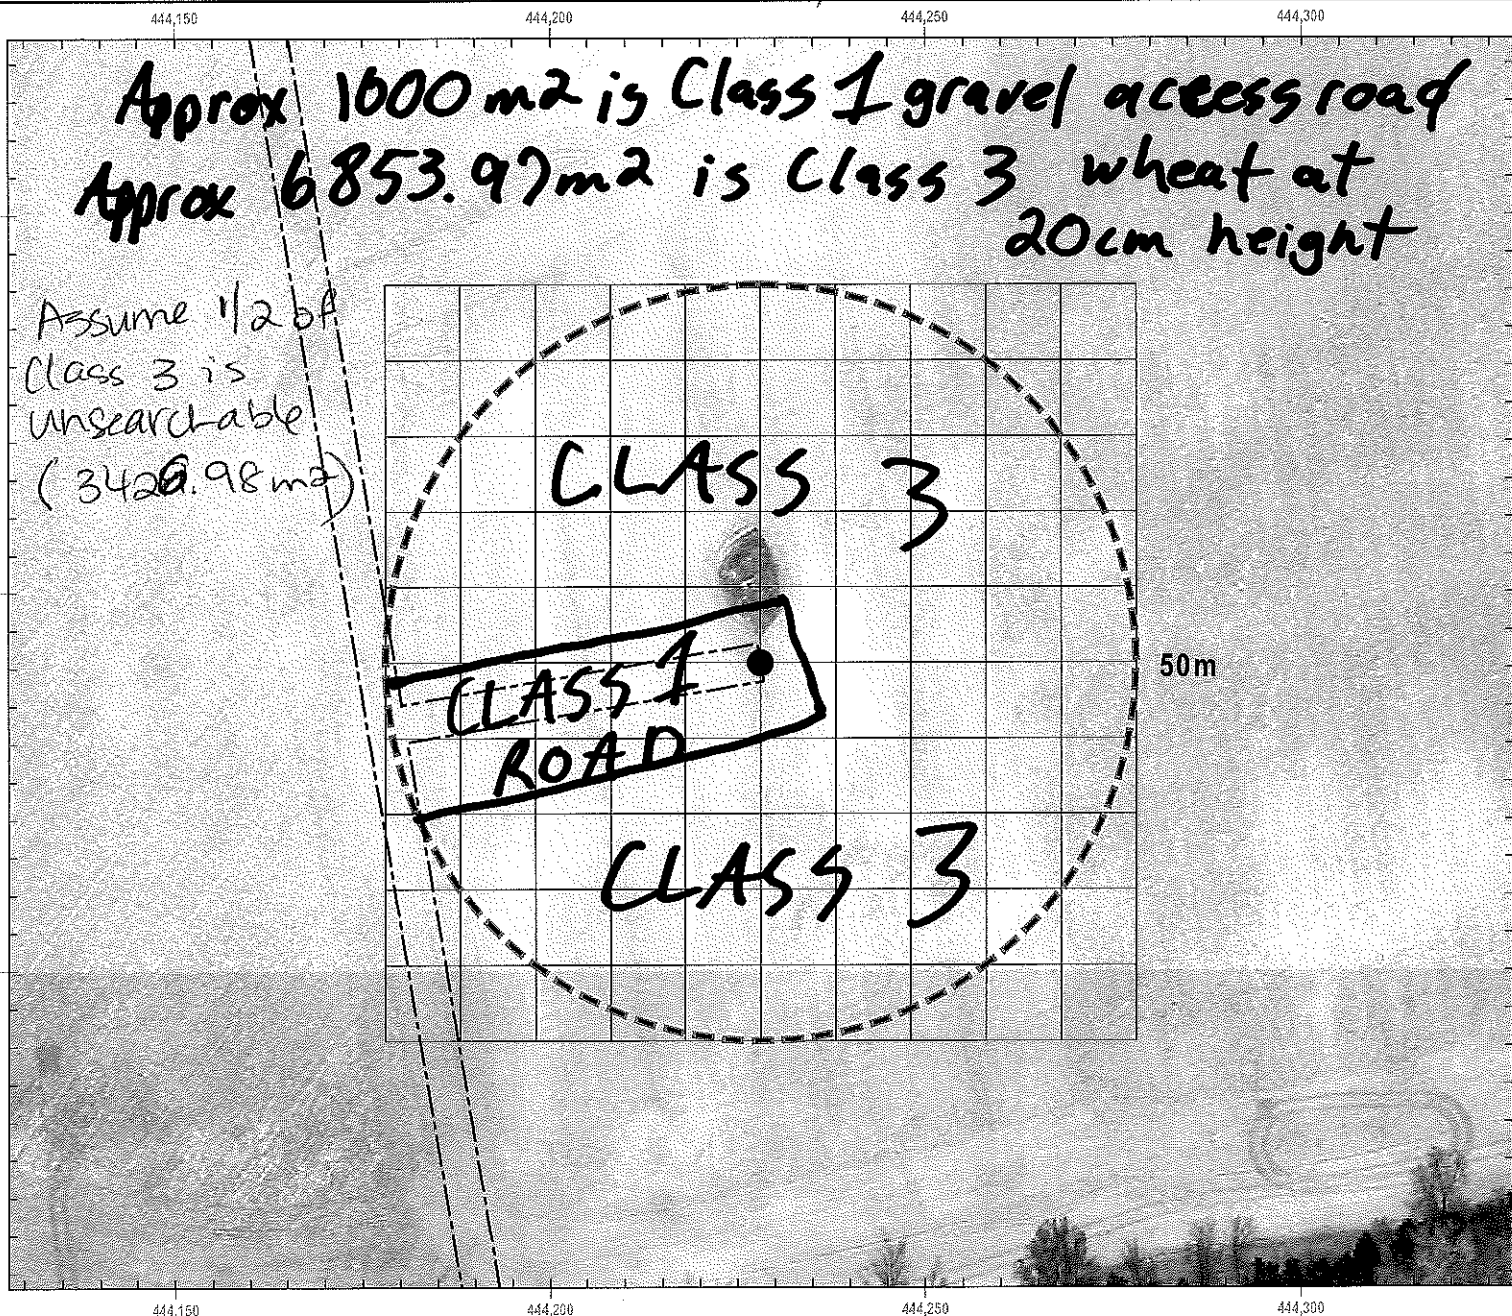 444,150 444,200 444,250 444,300
Approx 1000 m2 is Class 1 gravel access road
Approx 6853.97m2 is Class 3 wheat at
20cm height
Assume 1/2 of
Class 3 is
unsearchable
(3426.98m2)
CLASS 3
CLASS 1
ROAD
50m
CLASS 3
444,150 444,200 444,250 444,300